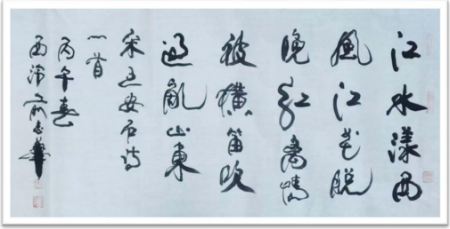 江水漾西
風江花脱
晚紅離情
被横笛吹
過亂山東
宋王安石詩
一首
丙午春
西俞志華